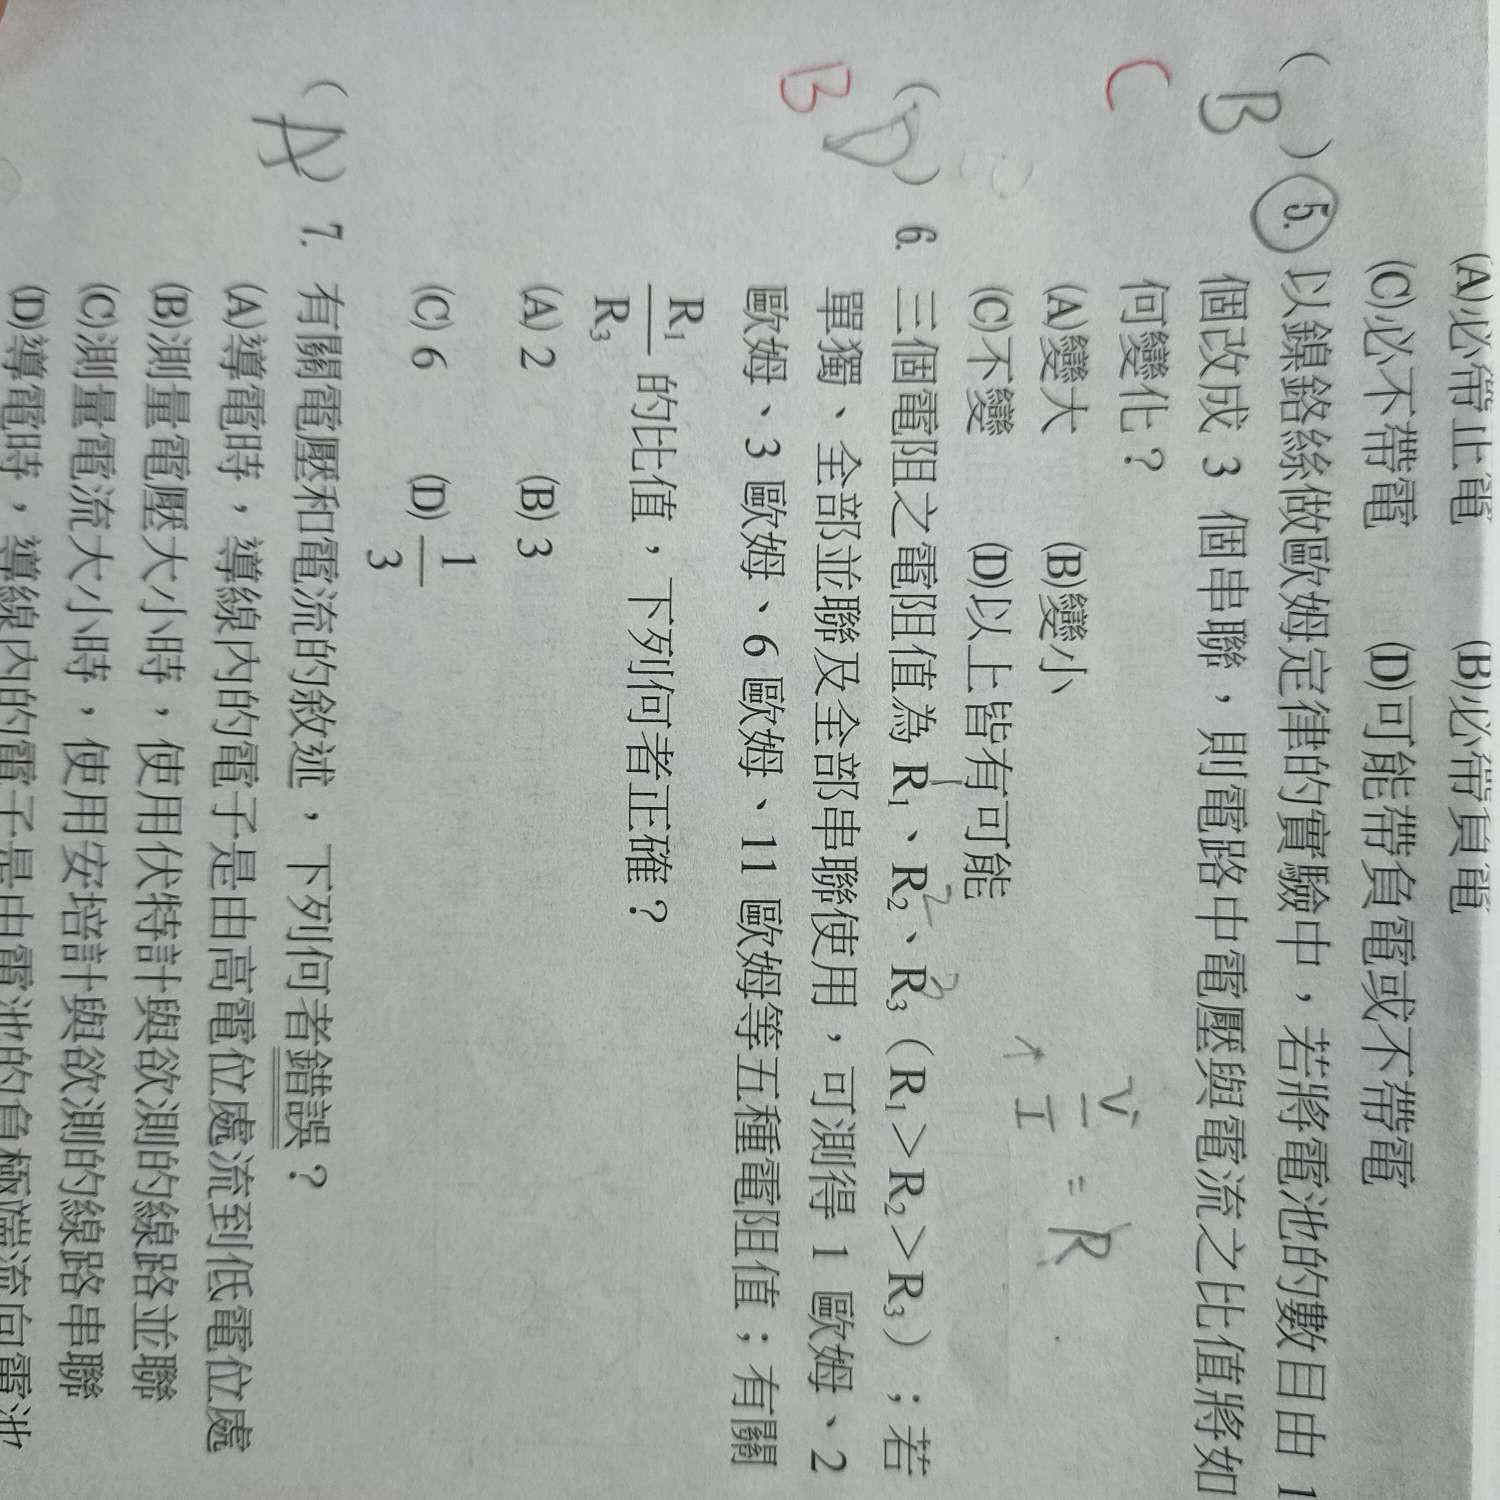 (A)必帶正電 (B)必帶負電
(C)必不帶電 (D)可能帶負電或不帶電
( B )5. 以鎳鉻絲做歐姆定律的實驗中，若將電池的數目由 1
C 個改成 3 個串聯，則電路中電壓與電流之比值將如
何變化？
(A)變大 (B)變小
(C)不變 (D)以上皆有可能
V/I = R
( D )6. 三個電阻之電阻值為 R₁、R₂、R₃（R₁＞R₂＞R₃）；若
1 2 3
B 單獨、全部並聯及全部串聯使用，可測得 1 歐姆、2
歐姆、3 歐姆、6 歐姆、11 歐姆等五種電阻值；有關
R₁/R₃ 的比值，下列何者正確？
(A) 2 (B) 3
(C) 6 (D) 1/3
( A )7. 有關電壓和電流的敘述，下列何者錯誤？
(A)導電時，導線內的電子是由高電位處流到低電位處
(B)測量電壓大小時，使用伏特計與欲測的線路並聯
(C)測量電流大小時，使用安培計與欲測的線路串聯
(D)導電時，導線內的電子是由電池的負極端流向電池